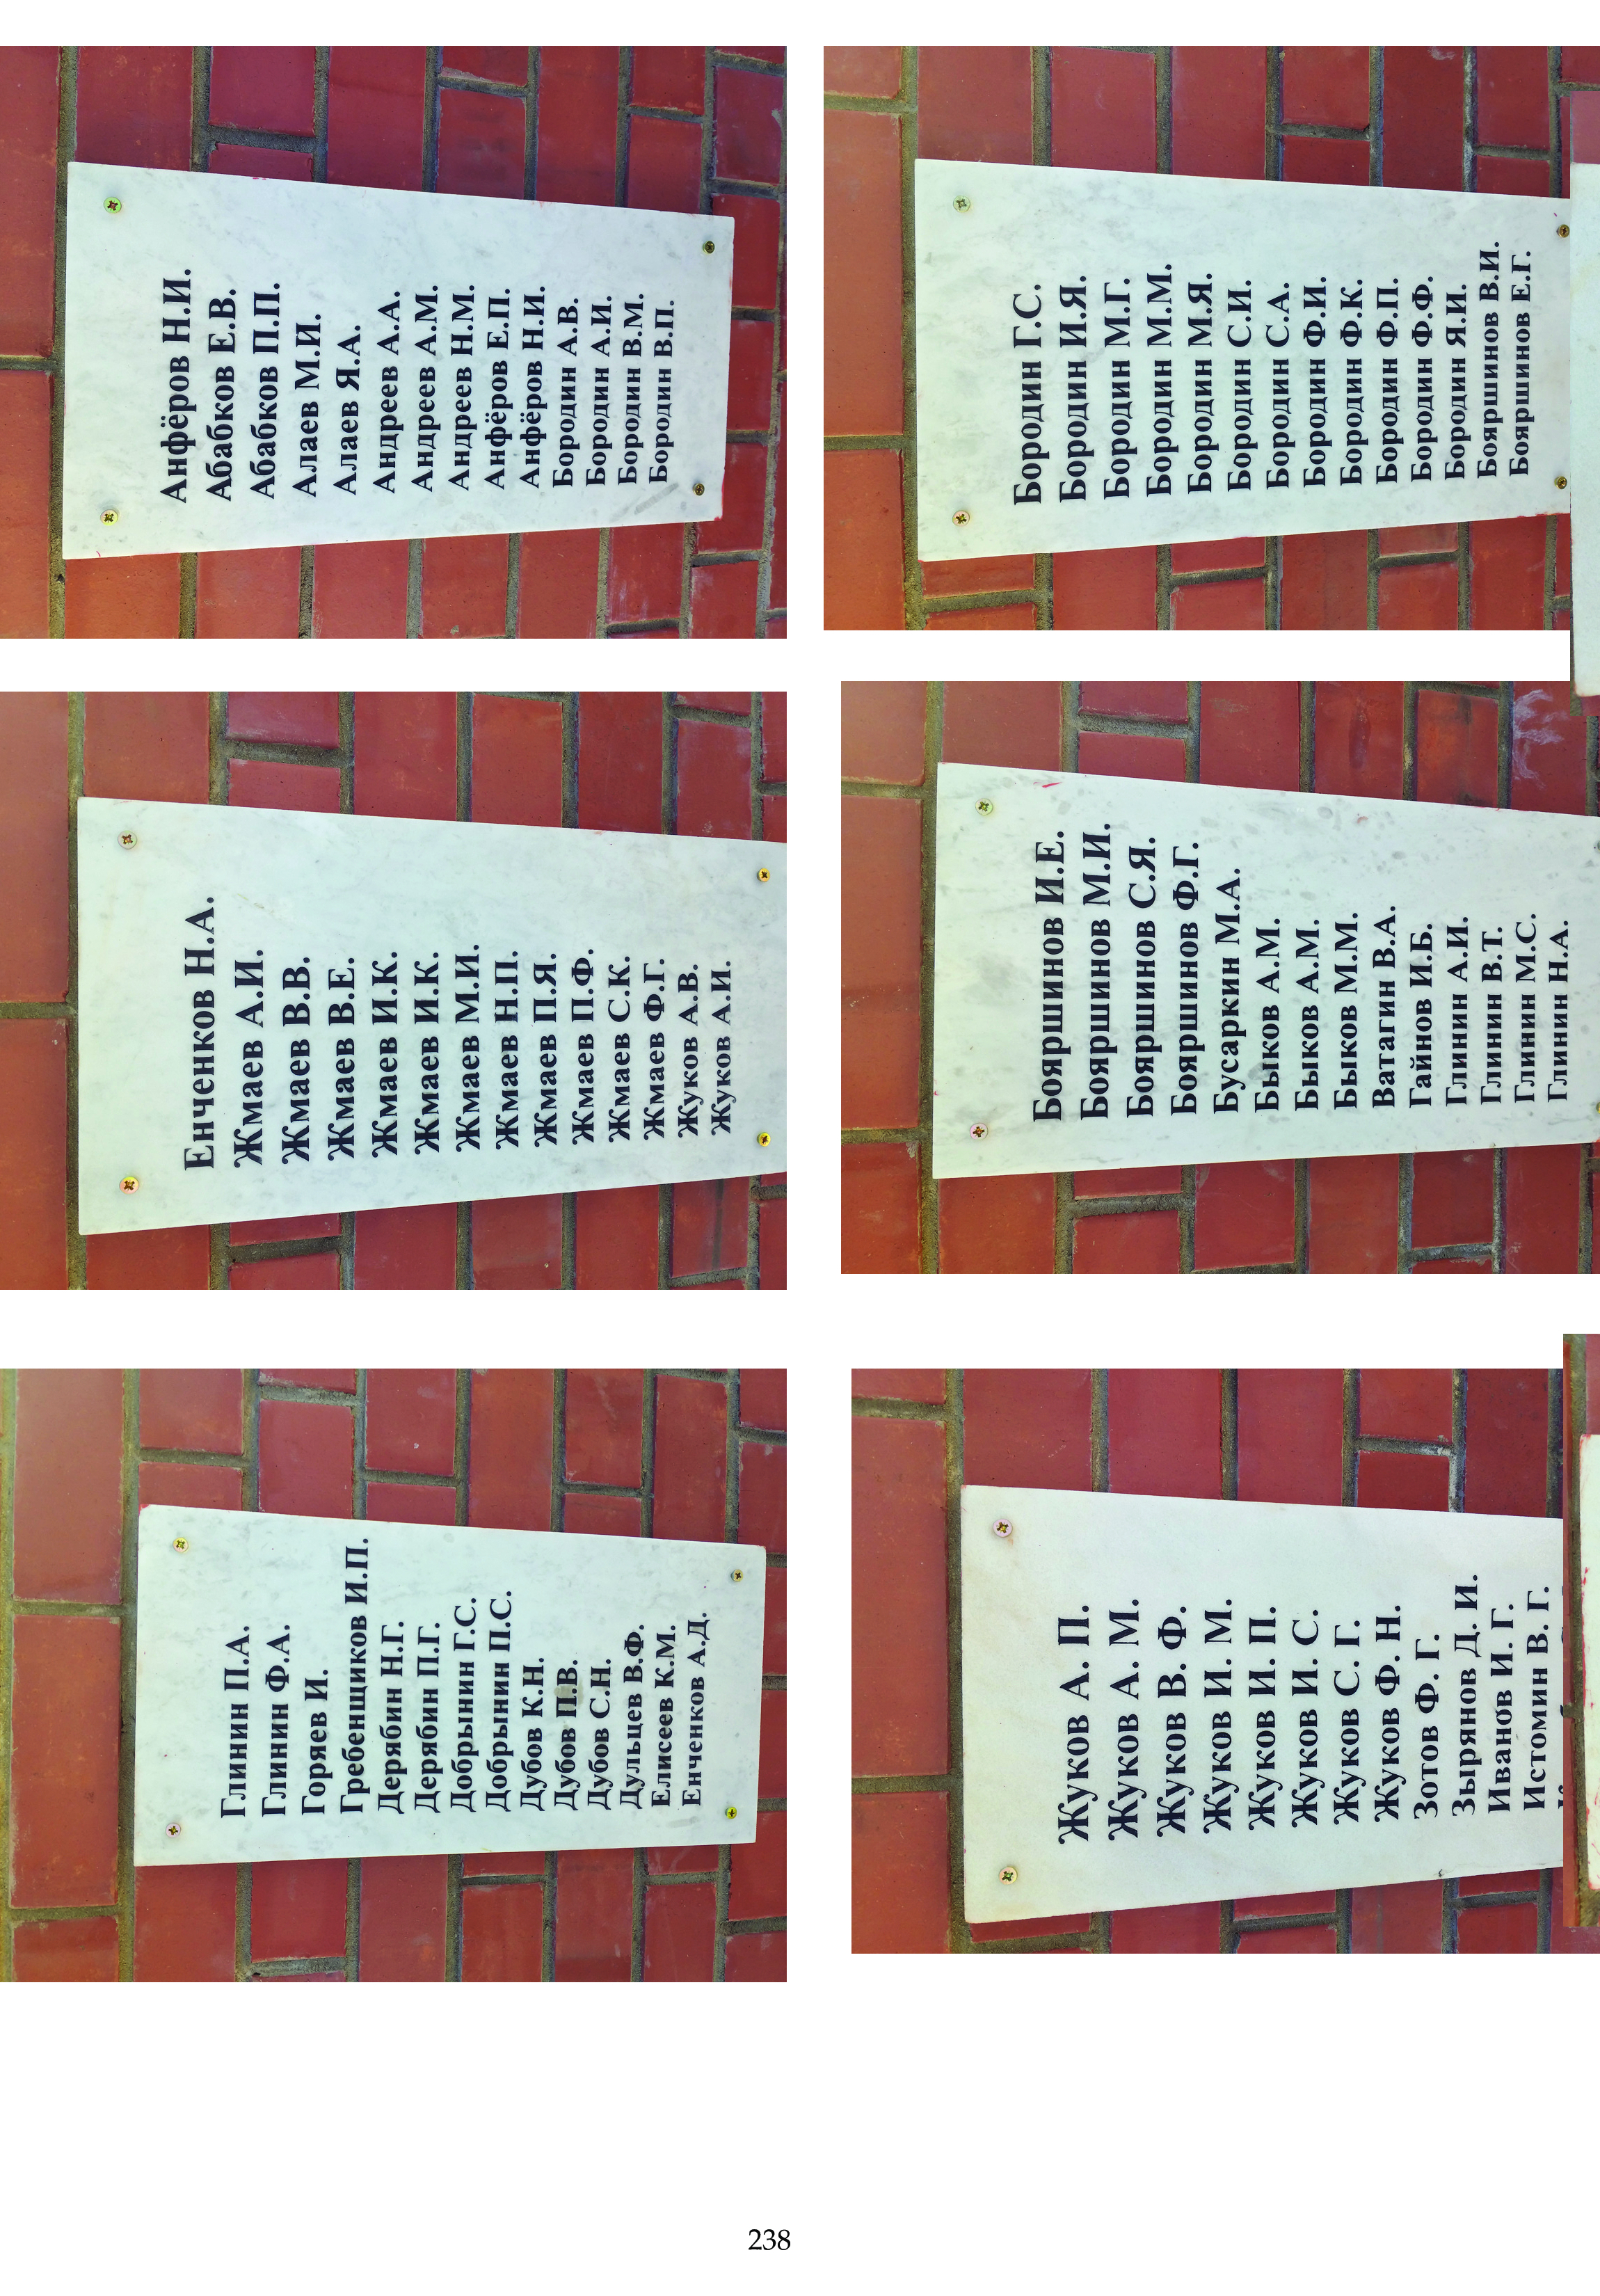 Анфёров Н.И.
Абабков Е.В.
Абабков П.П.
Алаев М.И.
Алаев Я.А.
Андреев А.А.
Андреев А.М.
Андреев Н.М.
Анфёров Е.П.
Анфёров Н.И.
Бородин А.В.
Бородин А.И.
Бородин В.М.
Бородин В.П.
Бородин Г.С.
Бородин И.Я.
Бородин М.Г.
Бородин М.М.
Бородин М.Я.
Бородин С.И.
Бородин С.А.
Бородин Ф.И.
Бородин Ф.К.
Бородин Ф.П.
Бородин Ф.Ф.
Бородин Я.И.
Бояршинов В.И.
Бояршинов Е.Г.
Енченков Н.А.
Жмаев А.И.
Жмаев В.В.
Жмаев В.Е.
Жмаев И.К.
Жмаев И.К.
Жмаев М.И.
Жмаев Н.П.
Жмаев П.Я.
Жмаев П.Ф.
Жмаев С.К.
Жмаев Ф.Г.
Жуков А.В.
Жуков А.И.
Бояршинов И.Е.
Бояршинов М.И.
Бояршинов С.Я.
Бояршинов Ф.Г.
Бусаркин М.А.
Быков А.М.
Быков А.М.
Быков М.М.
Ватагин В.А.
Гайнов И.Б.
Глинин А.И.
Глинин В.Т.
Глинин М.С.
Глинин Н.А.
Глинин П.А.
Глинин Ф.А.
Горяев И.
Гребенщиков И.П.
Дерябин Н.Г.
Дерябин П.Г.
Добрынин Г.С.
Добрынин П.С.
Дубов К.Н.
Дубов П.В.
Дубов С.Н.
Дульцев В.Ф.
Елисеев К.М.
Енченков А.Д.
Жуков А. П.
Жуков А. М.
Жуков В. Ф.
Жуков И. М.
Жуков И. П.
Жуков И. С.
Жуков С. Г.
Жуков Ф. Н.
Зотов Ф. Г.
Зырянов Д. И.
Иванов И. Г.
Истомин В. Г.
238